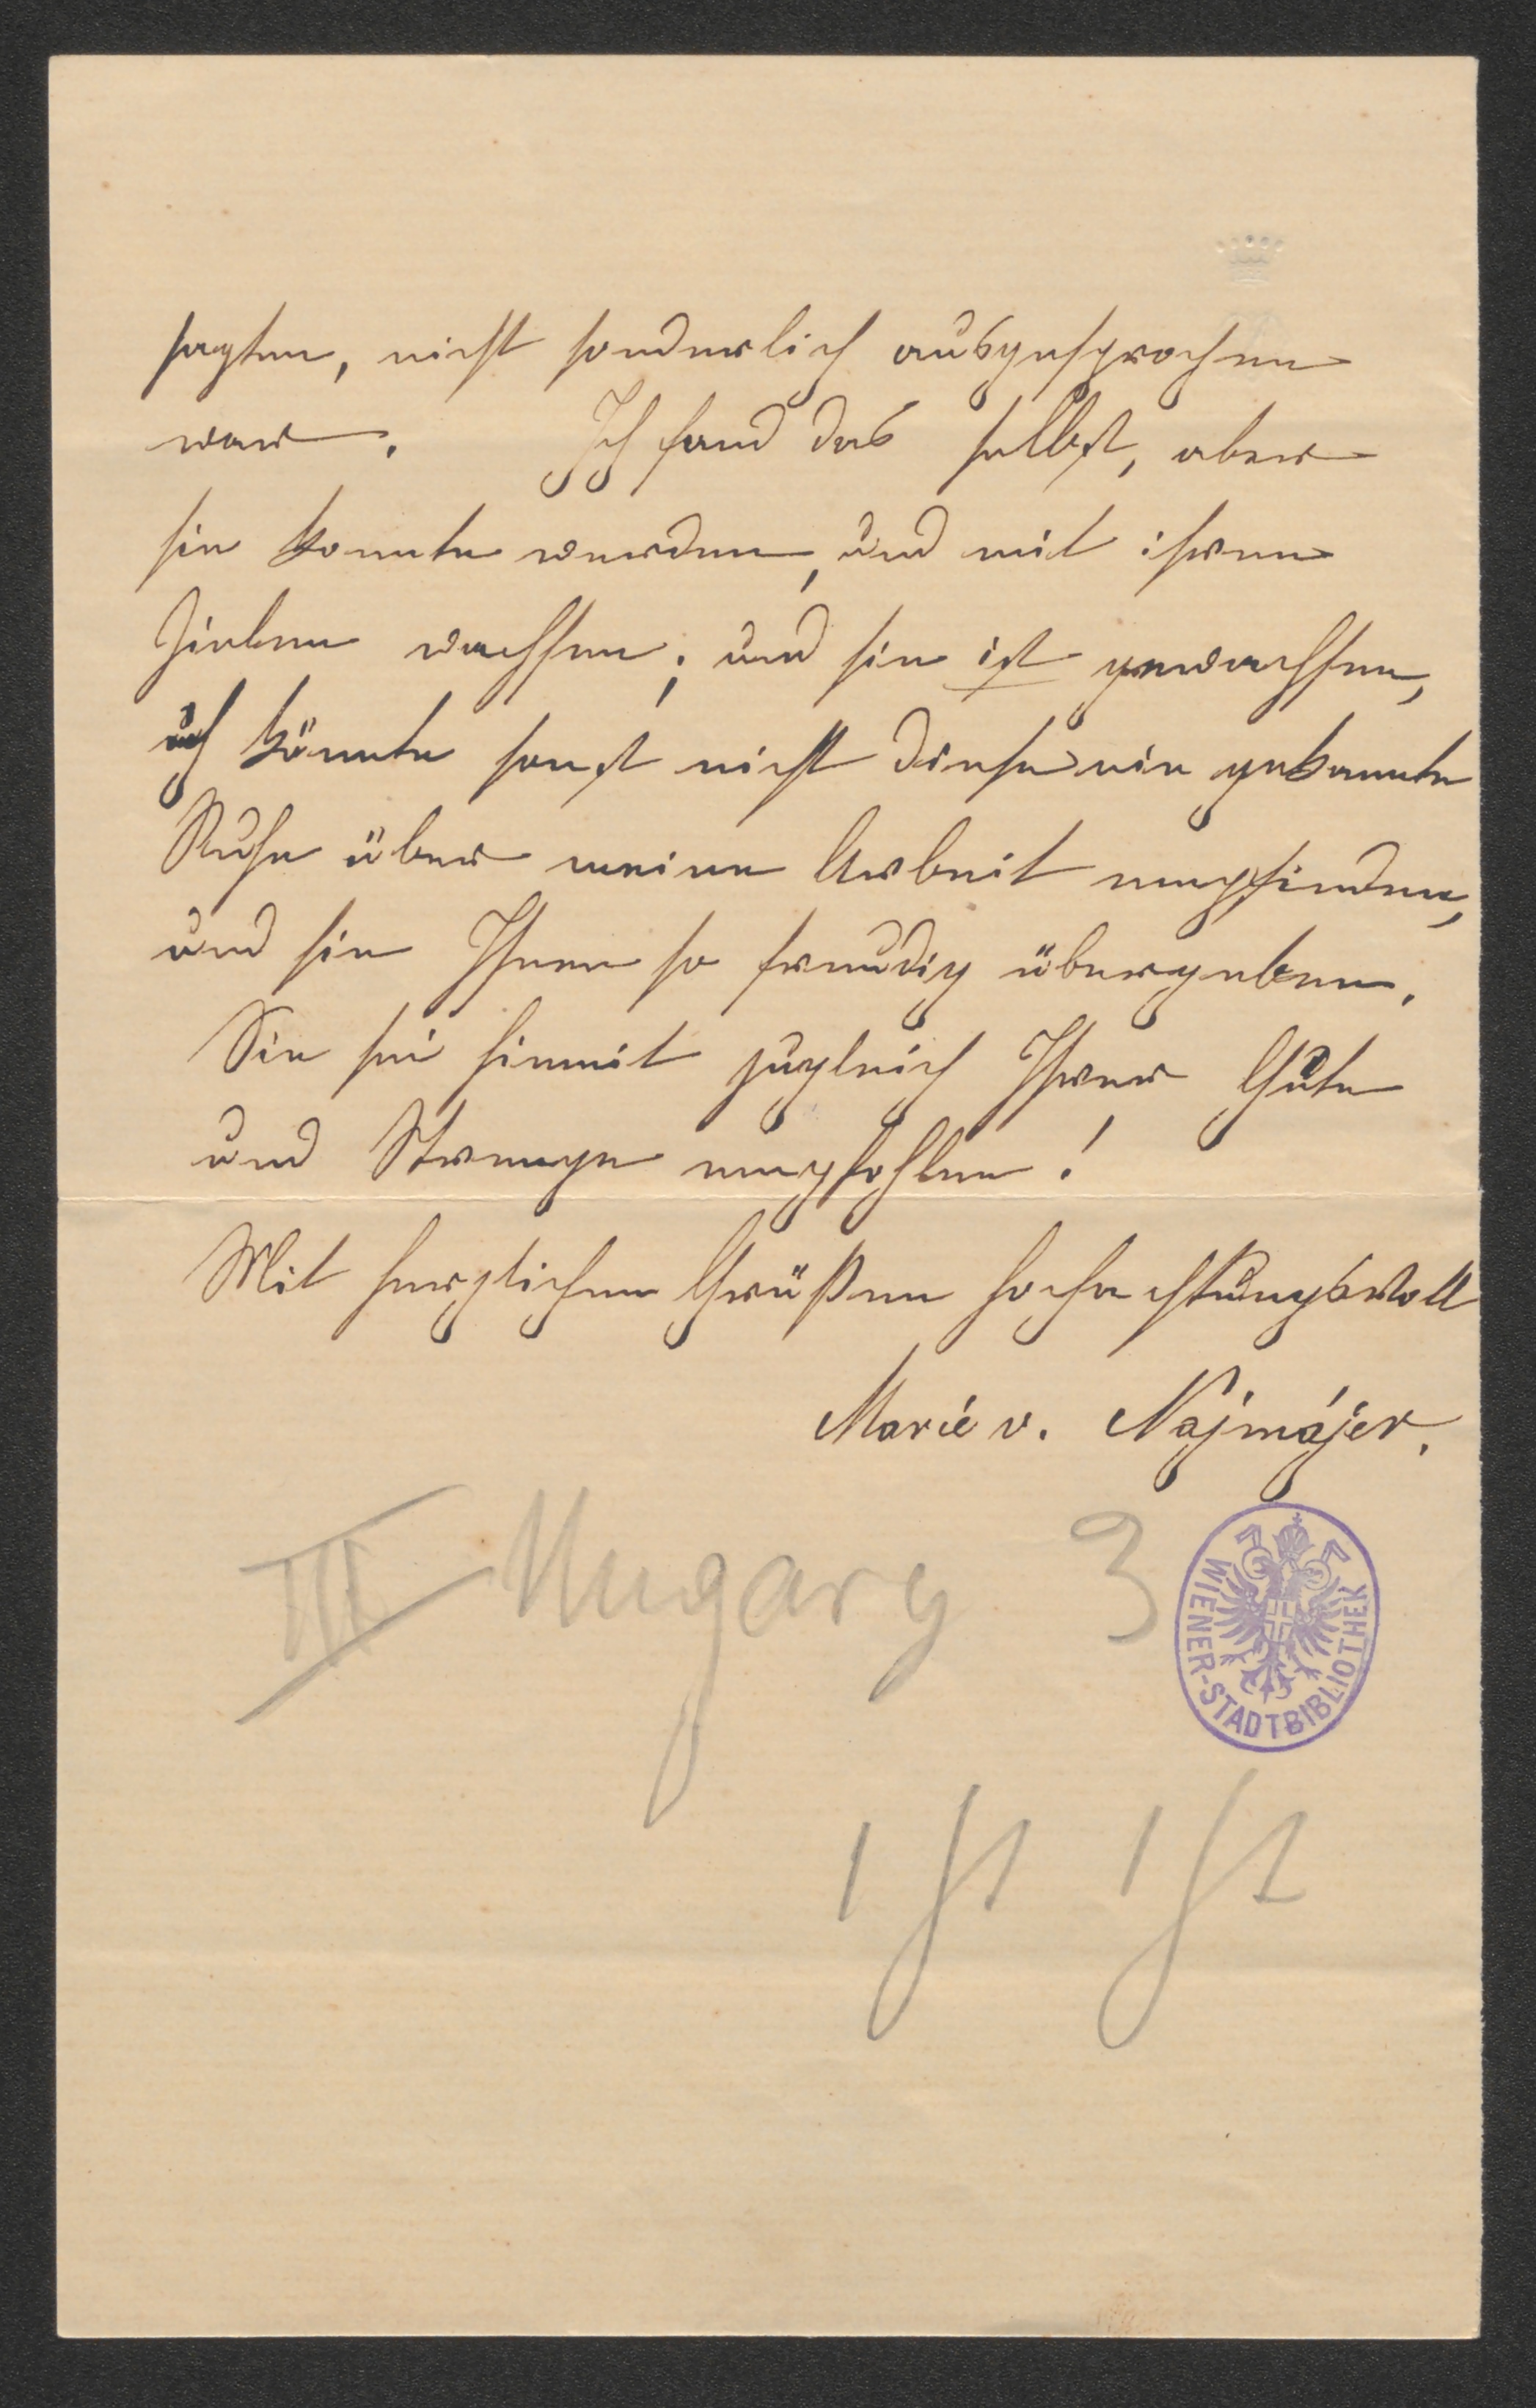 sagten, nicht sonderlich ausgesprochen
war. Ich fand das selbst, aber
sie konnte werden, und mit ihren
Zielen wachsen; und sie ist gewachsen,
ich könnte sonst nicht diese nie gekannte
Ruhe über meine Arbeit empfinden,
und sie Ihnen so freudig übergeben.
Sie sei hiemit zugleich Ihrer Güte
und Strenge empfohlen!
Mit herzlichen Grüßen hochachtungsvoll
Marie v. Najmájer.
III Ungarg 3
WIENER-STADTBIBLIOTHEK